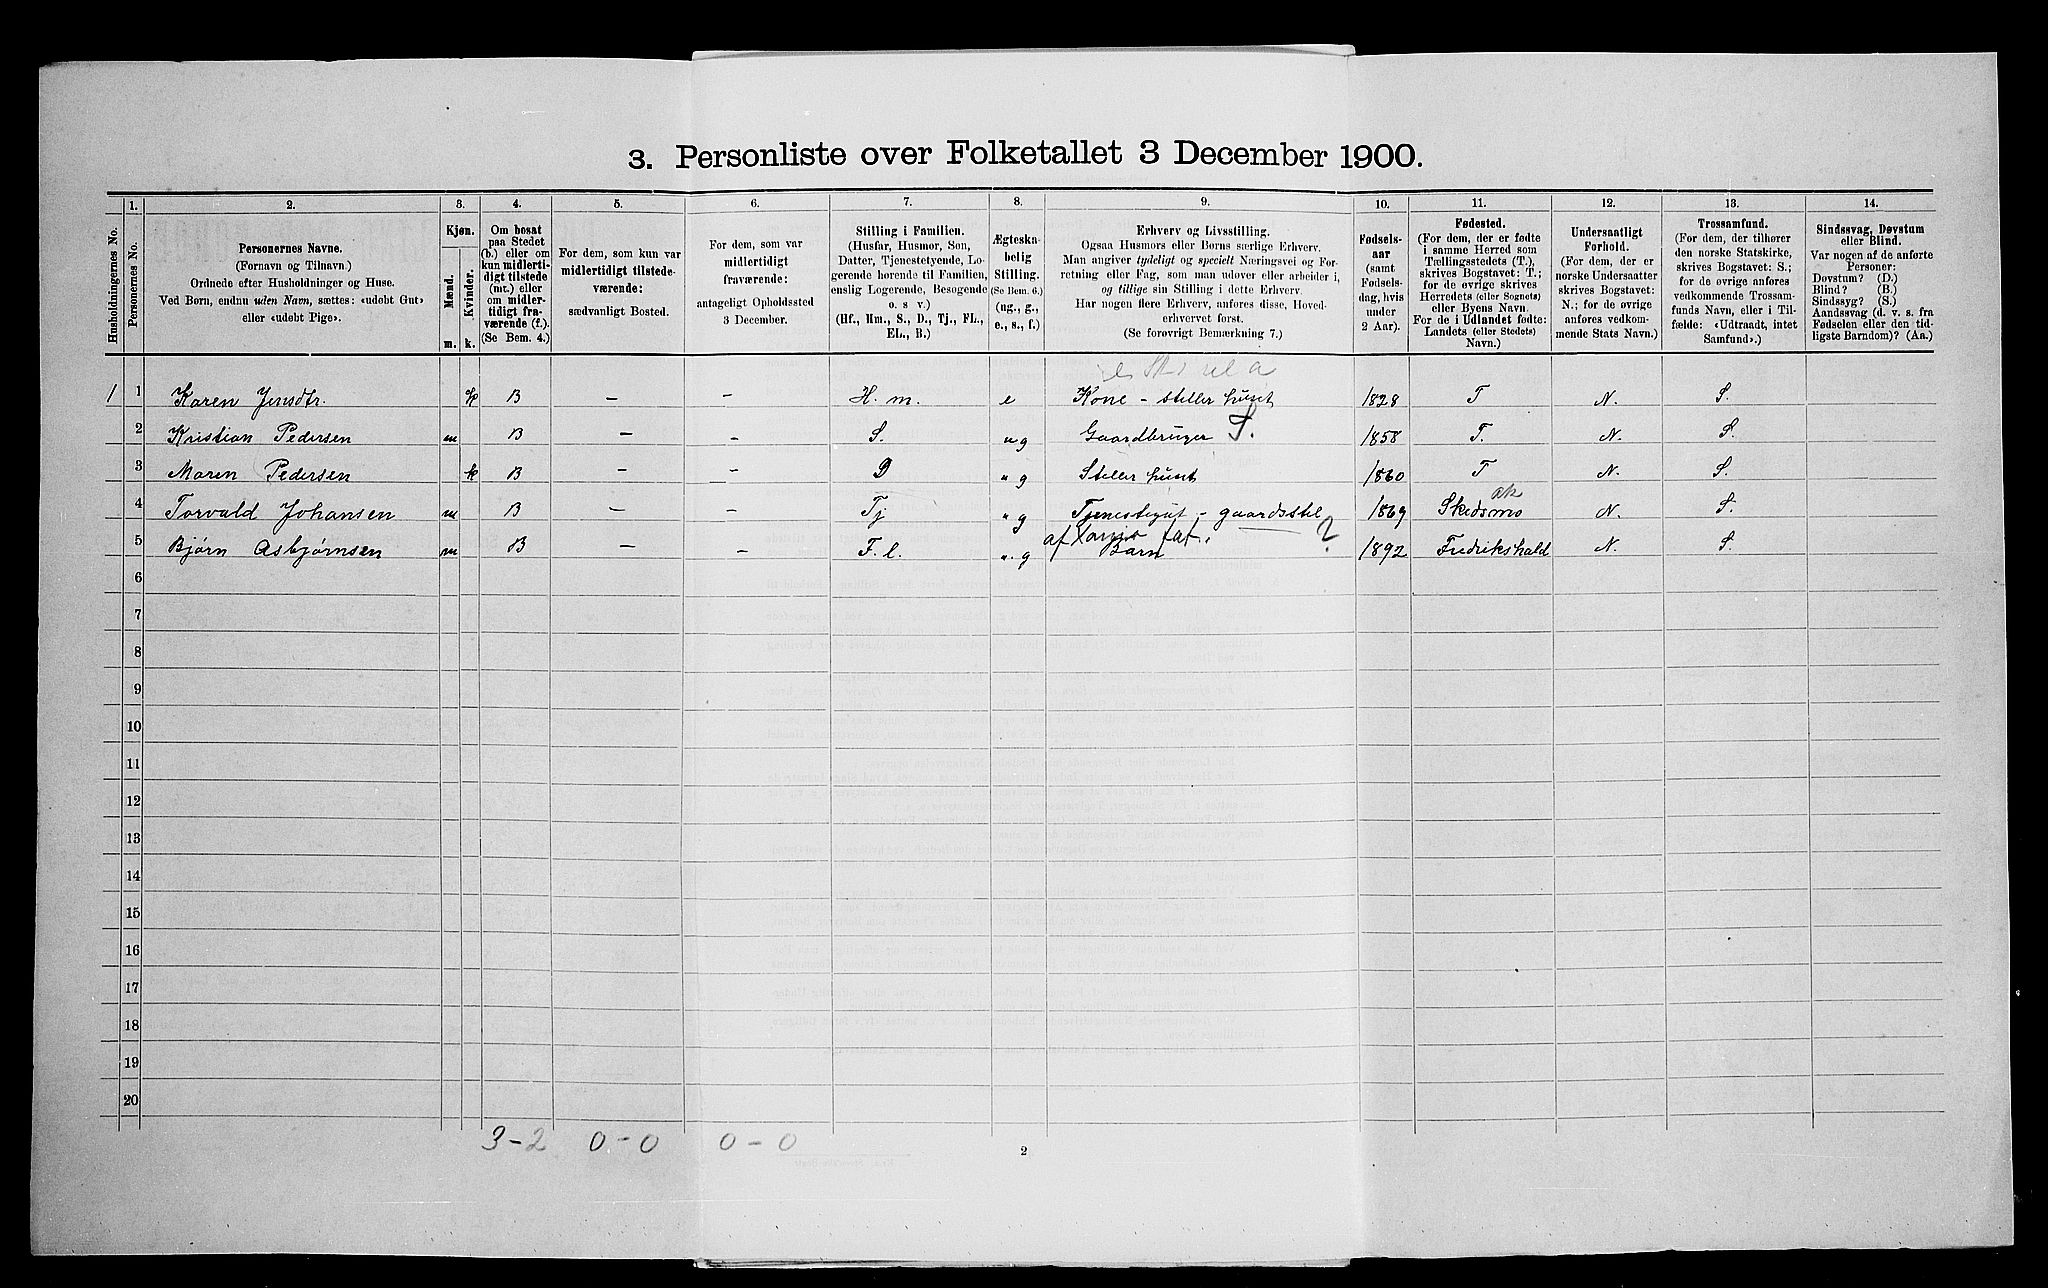 3. Personliste over Folketallet 3 December 1900.
Husholdningernes No.
1.
Personernes No.
2.
Personernes Navne.
(Fornavn og Tilnavn.)
Ordnede efter Husholdninger og Huse.
Ved Børn, endnu uden Navn, sættes: «udøbt Gut»
eller «udøbt Pige».
3.
Kjøn.
Mænd.
Kvinder.
m. k.
4.
Om bosat
paa Stedet
(b.) eller om
kun midlerti-
digt tilstede
(mt.) eller
om midler-
tidigt fra-
værende (f.).
(Se Bem. 4.)
5.
For dem, som kun var
midlertidigt tilstede-
værende:
sædvanligt Bosted.
6.
For dem, som var
midlertidigt
fraværende:
antageligt Opholdssted
3 December.
7.
Stilling i Familien.
(Husfar, Husmor, Søn,
Datter, Tjenestetyende, Lo-
gerende hørende til Familien,
enslig Logerende, Besøgende
o. s v.)
(Hf., Hm., S., D., Tj., FL.,
EL., B.)
8.
Ægteska-
belig
Stilling.
(Se Bem. 6.)
(ug., g.,
e., s., f.)
9.
Erhverv og Livsstilling.
Ogsaa Husmors eller Børns særlige Erhverv.
Man angiver tydeligt og specielt Næringsvei og For-
retning eller Fag, som man udøver eller arbeider i,
og tillige sin Stilling i dette Erhverv.
Har nogen flere Erhverv, anføres disse, Hoved-
erhvervet først.
(Se forøvrigt Bemærkning 7.)
10.
Fødsels-
aar
(samt
Fødsels-
dag, hvis
under
2 Aar).
11.
Fødested.
(For dem, der er fødte
i samme Herred som
Tællingsstedets (T.),
skrives Bogstavet: T.;
for de øvrige skrives
Herredets (eller Sognets)
eller Byens Navn.
For de i Udlandet fødte:
Landets (eller Stedets)
Navn.)
12.
Undersaatligt
Forhold.
(For dem, der er
norske Undersaatter
skrives Bogstavet:
N.; for de øvrige
anføres vedkom-
mende Stats Navn.)
13.
Trossamfund.
(For dem, der tilhører
den norske Statskirke,
skrives Bogstavet: S.;
for de øvrige anføres
vedkommende Trossam-
funds Navn, eller i Til-
fælde: «Udtraadt, intet
Samfund».)
14.
Sindssvag, Døvstum
eller Blind.
Var nogen af de anførte
Personer:
Døvstum? (D.)
Blind? (B.)
Sindssyg? (S.)
Aandssvag (d. v. s. fra
Fødselen eller den tid-
ligste Barndom)? (Aa.)
1 1 Karen Jensdtr. k B – – H. m. e Kone – steller huset 1828 T N. S.
2 Kristian Pedersen m B – – S. ug Gaardbruger S. 1858 T. N. S.
3 Maren Pedersen k B – – D " g Steller huset 1860 T N. S.
4 Torvald Johansen m B – – Tj " g Tjenestegut – gaardsstel 1869 Skedsmo ak N. S.
5 Bjørn Asbjørnsen m B – – F. l. " g af Barn ? 1892 Fredrikshald N. S.
6
7
8
9
10
11
12
13
14
15
16
17
18
19
20
3-2 0-0 0-0
2